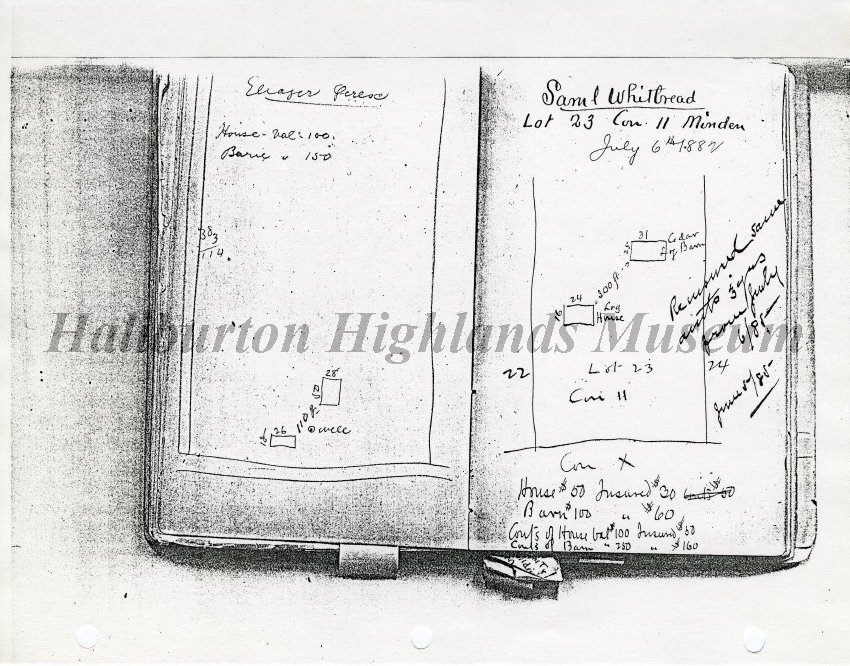 House - Val: 100.
Barn " 150
383
114.
28
110 ft
well
26
Saml Whitbread
Lot 23 Con. 11 Minden
July 6th 1882
31
Cedar
Barn
300 ft
24
Log
House
Renewed same
am't 3 yrs
from July
6/85
June 5/85
22
Lot 23
24
Con 11
Con X
House $50 Insured $30
Barn $100 " $60
Conts of House val $100 Insured $50
Conts of Barn " 250 " $160
Haliburton Highlands Museum